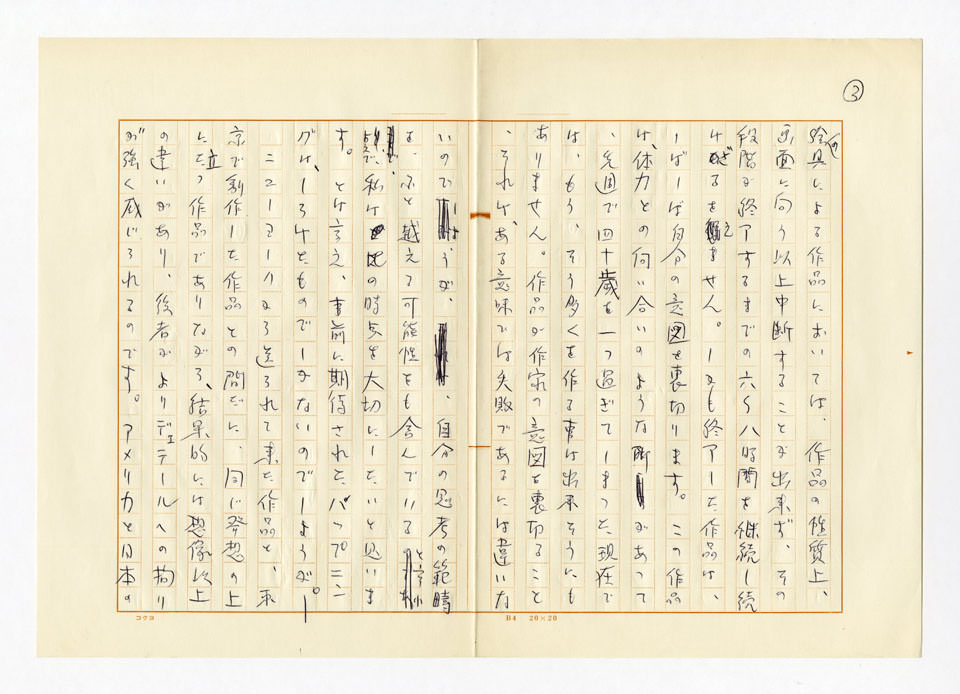 ③
絵具による作品においては、作品の性質上、
画面に向う以上中断することが出来ず、その
段階が終了するまでの六〜八時間を継続し続
けざるを得ません。しかも終了した作品は、
しばしば自分の意図を裏切ります。この作品
は、体力との向い合いのような所があって
、先週で四十歳を一つ過ぎてしまった現在で
は、もう、そう多くを作る事は出来そうにも
ありません。作品が作家の意図を裏切ること
、それは、ある意味では失敗であるには違いな
いのでしょうが、自分の思考の範疇
を、ふと越える可能性をも含んでいる
で、私はこの時点を大切にしたいと思いま
す。とは言え、事前に期待されたハップニン
グは、しらけたものでしかないのでしょうが。
ニューヨークから送られて来た作品と、東
京で制作した作品との間に、同じ発想の上
に立つ作品でありながら、結果的には想像以上
の違いがあり、後者がよりデェテールへの拘り
が強く感じられるのです。アメリカと日本の
コクヨ
B4 20×20